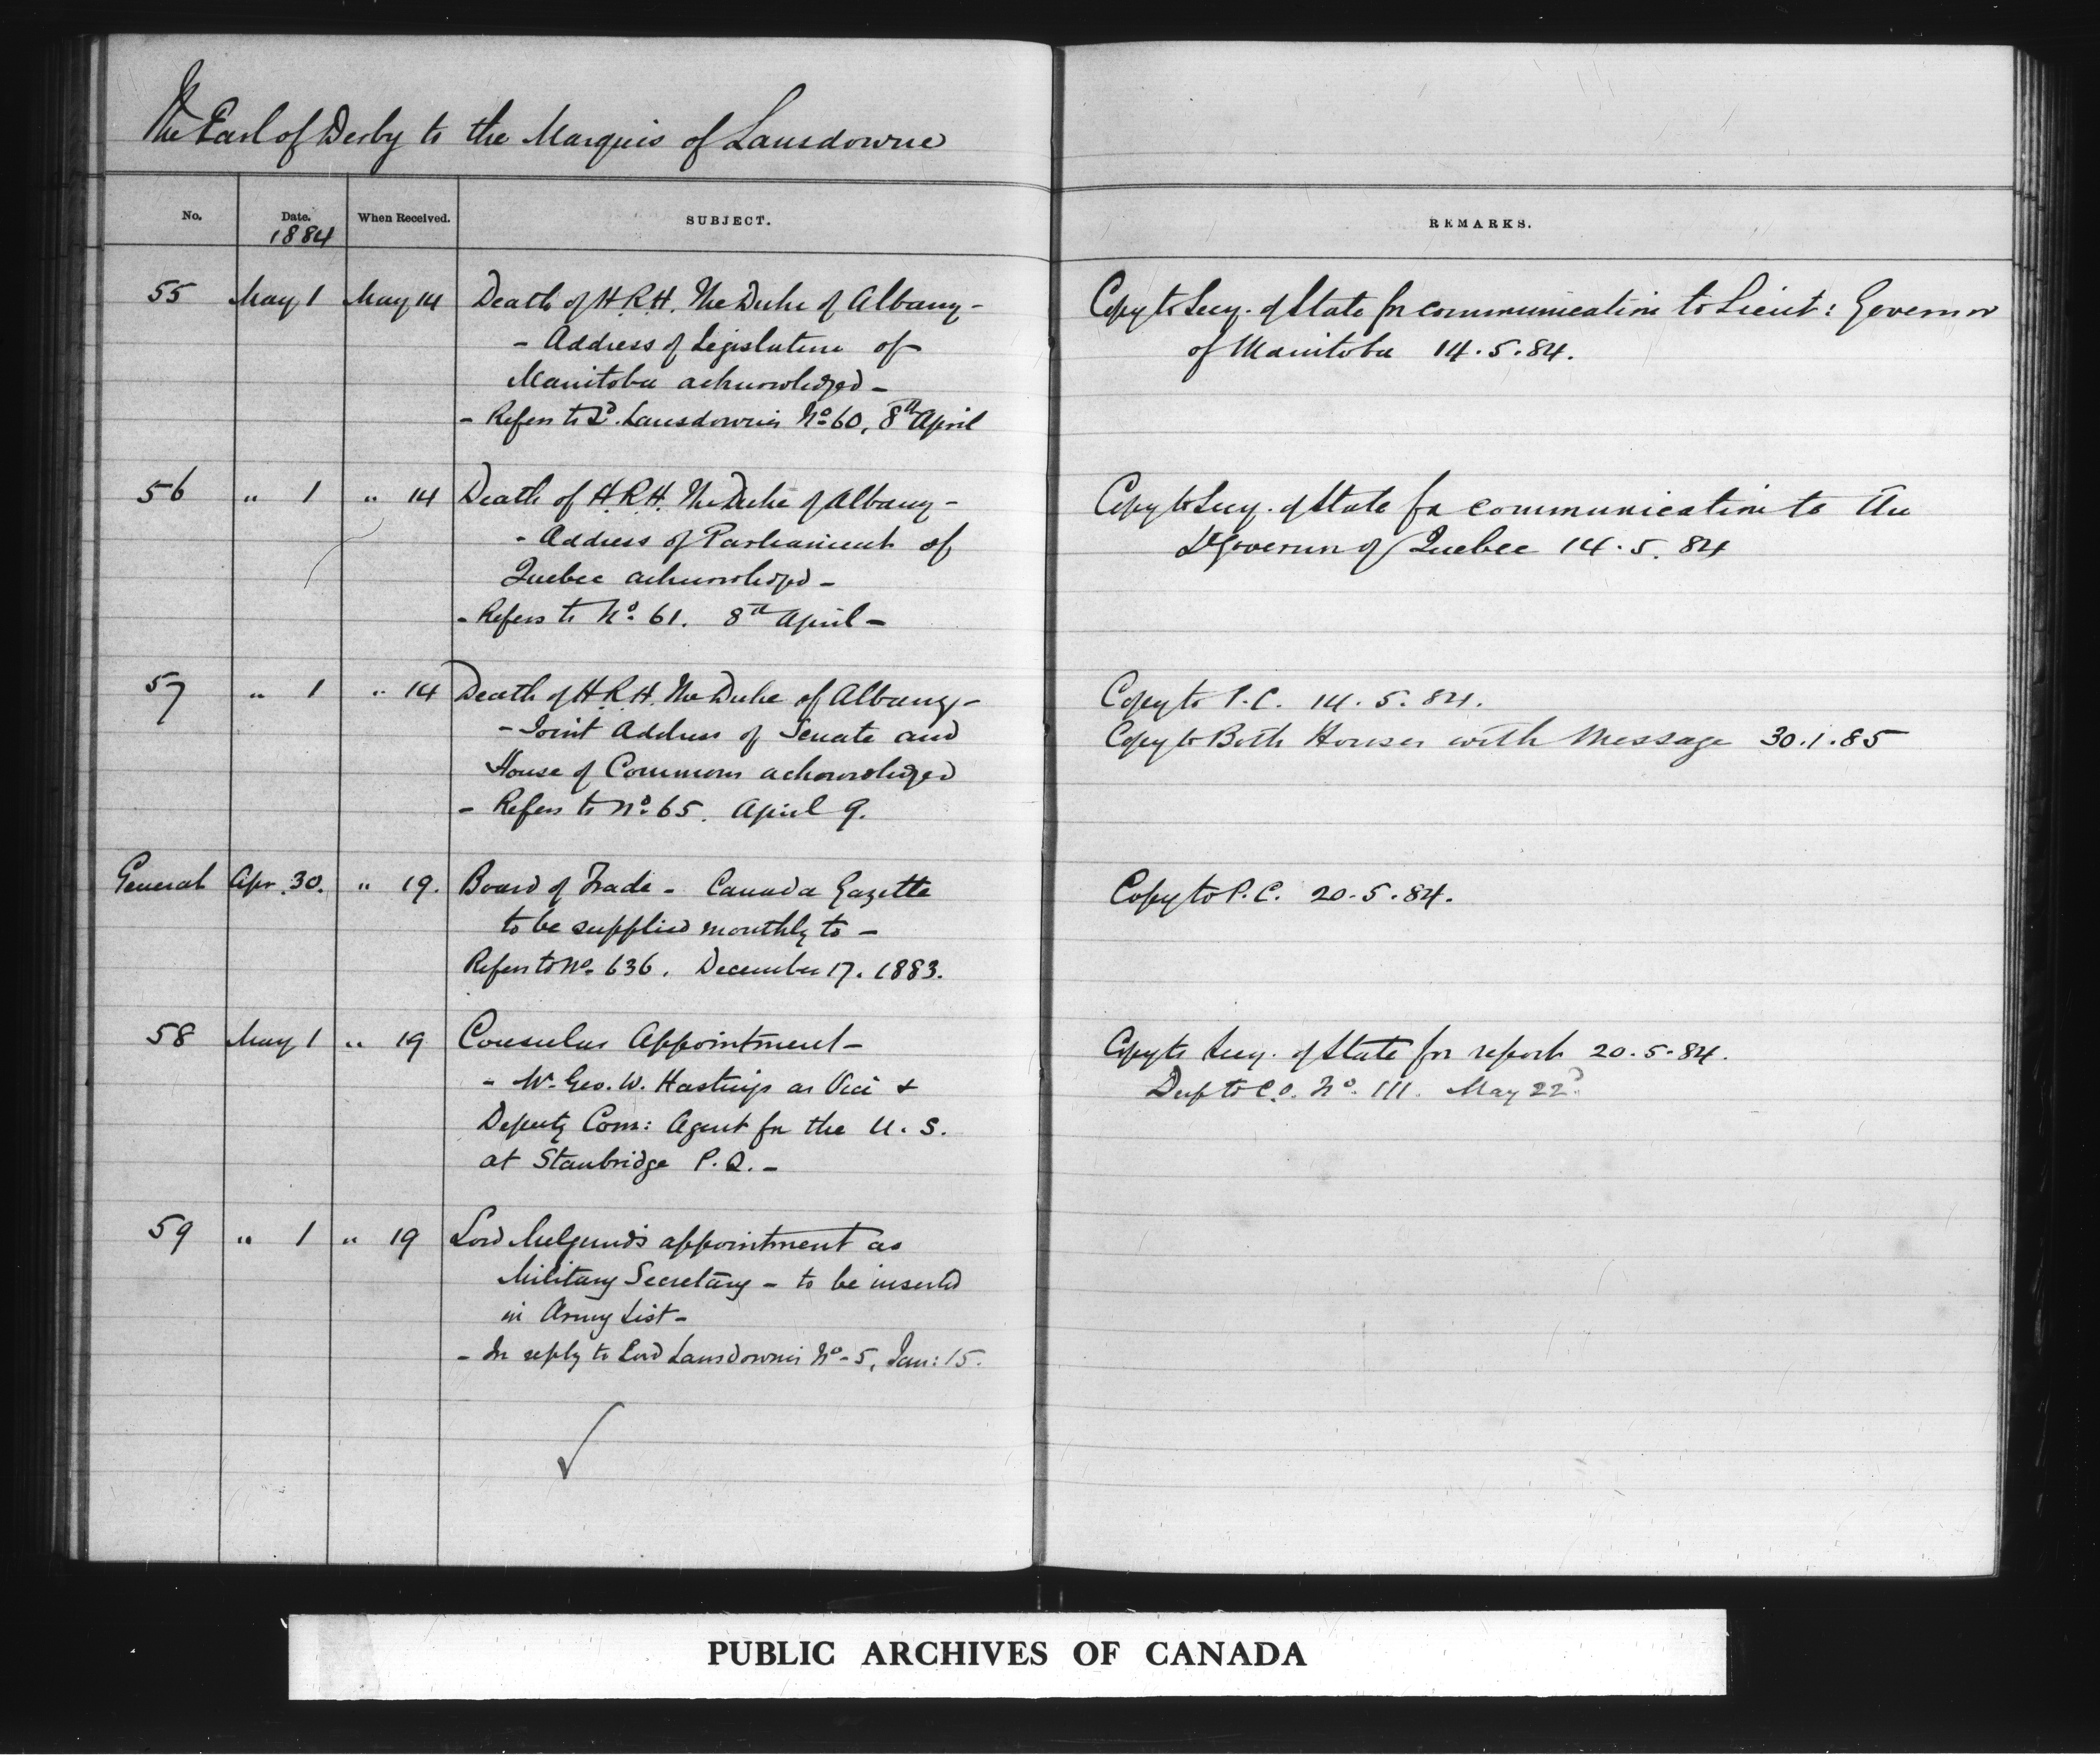 The Earl of Derby to the Marquis of Lansdowne
No. Date. When Received. SUBJECT. REMARKS.
1884
55 May 1 May 14 Death of H.R.H. The Duke of Albany - Copy to Secy. of State for communication to Lieut: Governor
- Address of Legislature of of Manitoba 14.5.84.
Manitoba acknowledged -
- Refers to Ld. Lansdowne's No. 60, 8th April
56 " 1 " 14 Death of H.R.H. The Duke of Albany - Copy to Secy. of State for communication to the
- Address of Parliament of Lt Governor of Quebec 14.5.84
Quebec acknowledged -
- Refers to No. 61. 8th April -
57 " 1 " 14 Death of H.R.H. The Duke of Albany - Copy to P.C. 14.5.84.
- Joint Address of Senate and Copy to Both Houses with Message 30.1.85
House of Commons acknowledged
- Refers to No. 65. April 9.
General Apr. 30. " 19. Board of Trade - Canada Gazette Copy to P.C. 20.5.84.
to be supplied monthly to -
Refers to No. 636. December 17. 1883.
58 May 1 " 19 Consular Appointment - Copy to Secy. of State for report 20.5.84.
- Mr. Geo. W. Hastings as Vice & Desp to C.O. No. 111. May 22d
Deputy Com: Agent for the U.S.
at Stanbridge P.Q. -
59 " 1 " 19 Lord Melgund's appointment as
Military Secretary - to be inserted
in Army List -
- In reply to Lord Lansdowne's No. 5, Jan: 15.
PUBLIC ARCHIVES OF CANADA